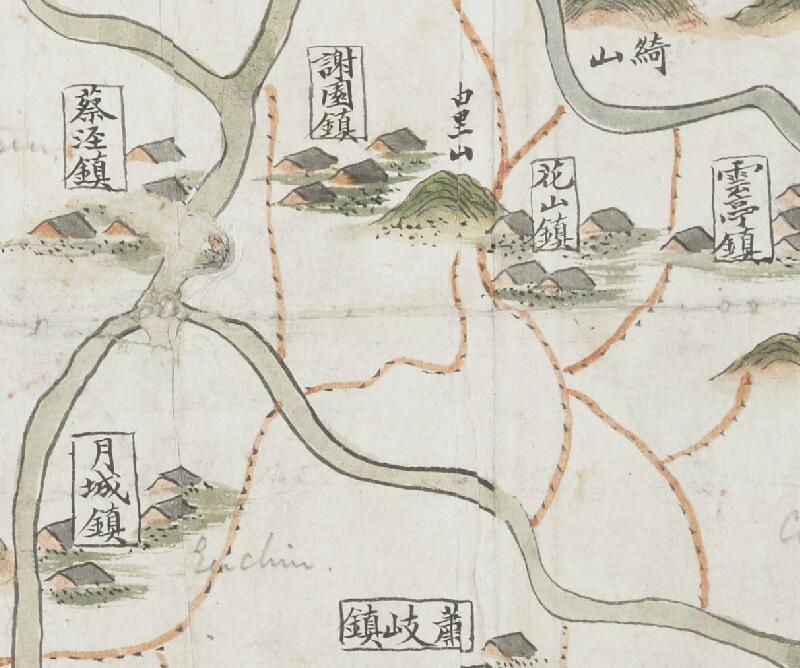 綺山
謝園鎮
蔡涇鎮
由里山
花山鎮
雲亭鎮
月城鎮
Enchin.
蕭岐鎮